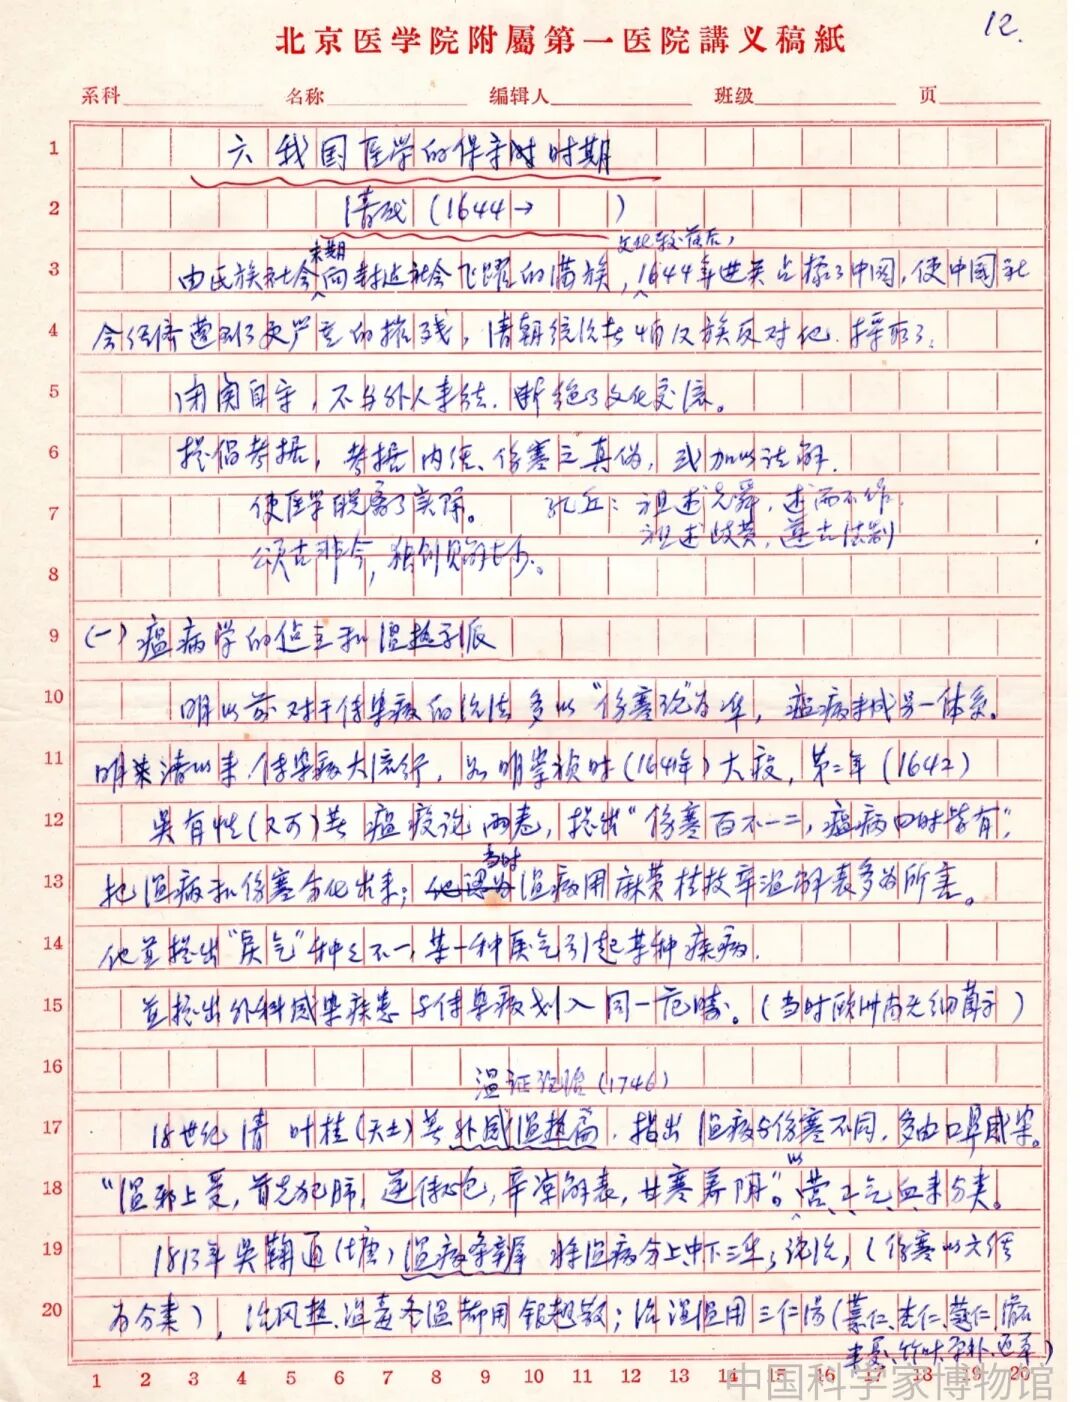 12.
北京医学院附屬第一医院講义稿紙
系科 名称 编辑人 班级 页
1 六 我国医学的保守时时期
2 清代 (1644→ )
末期 文化较落后,
3 由氏族社会向封建社会飞跃的满族,1644年进关占据了中国,使中国社
4 会经济遭到了更严重的摧残,清朝统治者 反对他
5 闭关自守,不与外人来往.断绝了文化交流。
6 提倡考据,考据内经、伤寒之真伪,或加以注解.
7 使医学脱离了实际。 孔丘:祖述尧舜,述而不作.
祖述岐黄,遵古法制
8 颂古非今,独创见解太少。
9 (一)瘟病学的建立和温热学派
10 明以前对于传染病的治法多以“伤寒论”为准,瘟病未成另一体系。
11 明末清以来.传染病大流行,如明崇祯时(1641年)大疫,第二年(1642)
12 吴有性(又可)著瘟疫论两卷,提出“伤寒百不一二,瘟病四时皆有”,
当时
13 把温病和伤寒分化出来;他认为温病用麻黄桂枝辛温解表多为所害。
14 他并提出“戾气”种々不一,某一种戾气引起某种疾病.
15 并提出外科感染疾患与传染病划入同一范畴。(当时欧洲尚无细菌学)
16 温证论治(1746)
17 18世纪 清 叶桂(天士)著外感温热篇.指出温病与伤寒不同.多由口鼻感染。
以
18 “温邪上受,首先犯肺,逆传心包,辛凉解表,甘寒养阴”。营卫气血来分类。
19 1813年吴鞠通(瑭)温病条辨 将温病分上中下三焦,论治,(伤寒以六经
20 为分类),治风热.温毒冬温都用银翘散;治湿温用三仁汤(薏仁、杏仁、蔻仁、滑石
半夏、竹叶、厚朴、通草)
1 2 3 4 5 6 7 8 9 10 11 12 13 14 15 16 17 18 19 20
中国科学家博物馆